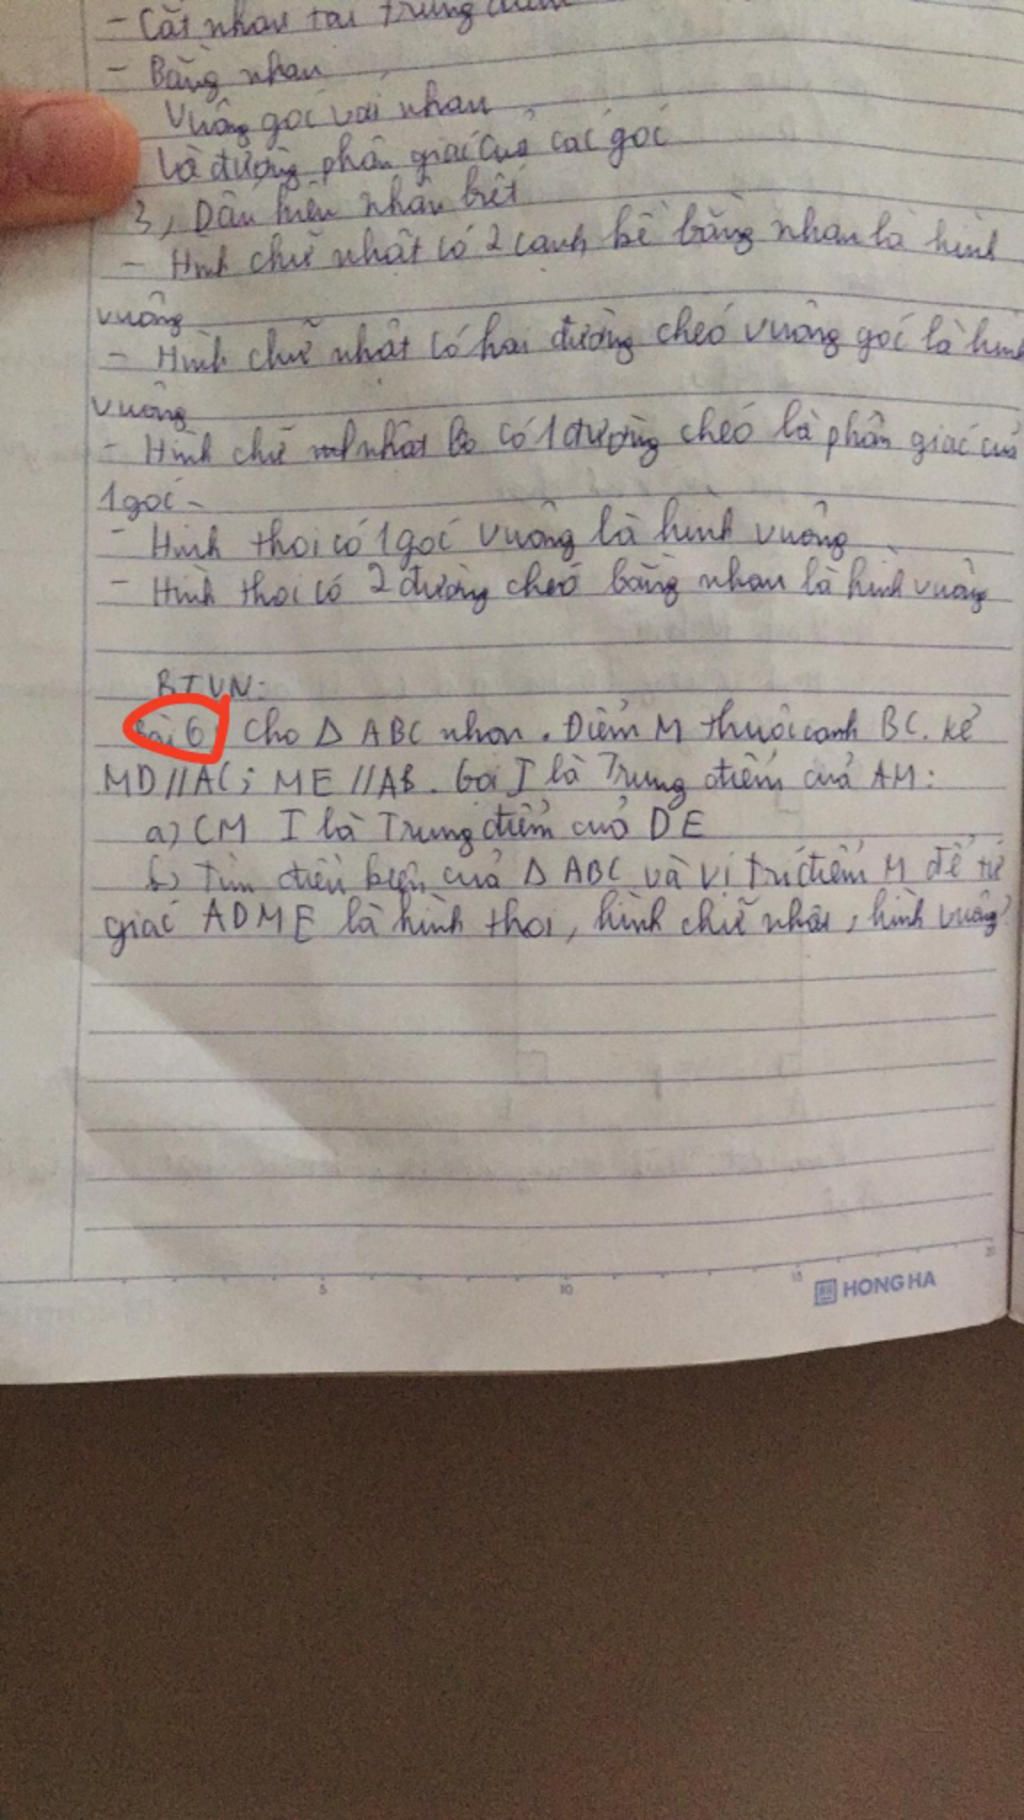 - Cắt nhau tại trung điểm
- Bằng nhau
Vuông góc với nhau
Là đường phân giác của các góc
3, Dấu hiệu nhận biết
- Hình chữ nhật có 2 cạnh kề bằng nhau là hình
vuông
- Hình chữ nhật có hai đường chéo vuông góc là hình
vuông
- Hình chữ nhật có 1 đường chéo là phân giác của
1 góc -
- Hình thoi có 1 góc vuông là hình vuông
- Hình thoi có 2 đường chéo bằng nhau là hình vuông
BTVN:
Bài 6: Cho Δ ABC nhọn. Điểm M thuộc cạnh BC. kẻ
MD//AC; ME//AB. Gọi I là Trung điểm của AM:
a) CM I là Trung điểm của DE
b) Tìm điều kiện của Δ ABC và vị trí điểm M để tứ
giác ADME là hình thoi, hình chữ nhật, hình vuông?
5 10 15 20
HONG HA